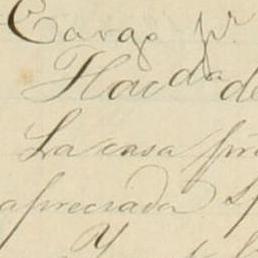 Cargo pr.
Hacda de
La casa pri
apreciada
Y